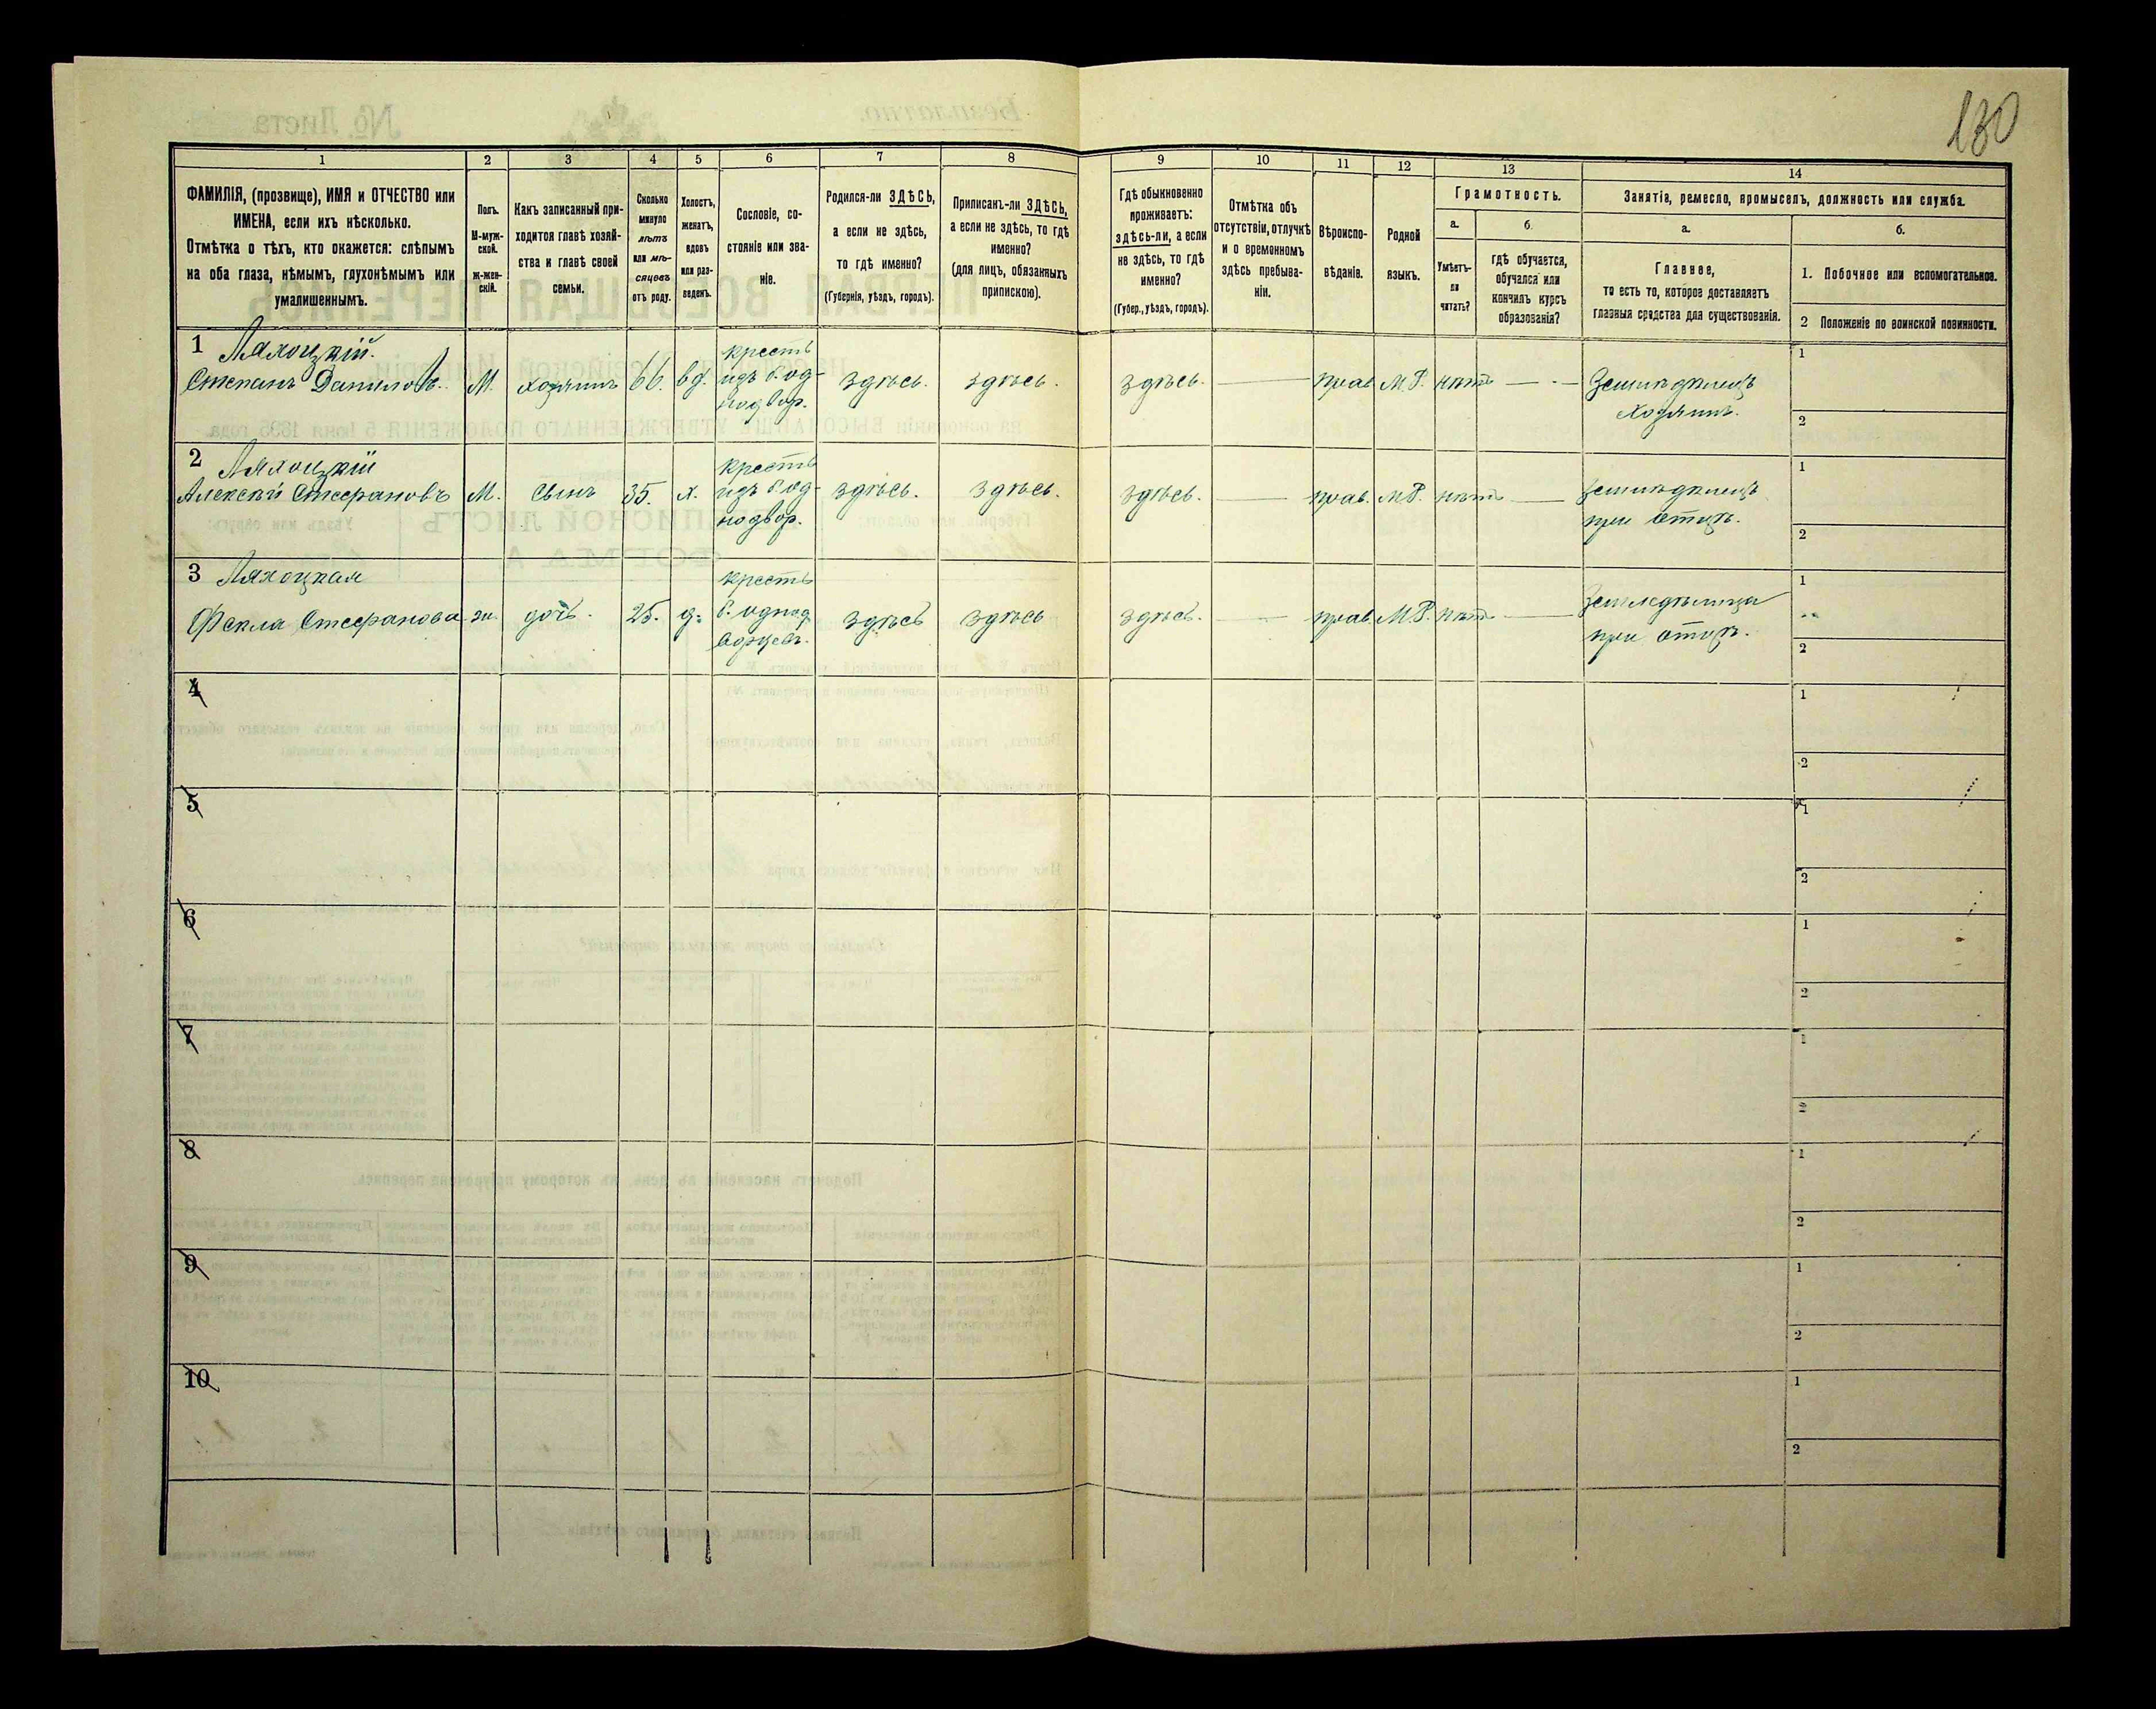 130
1 2 3 4 5 6 7 8 9 10 11 12 13 14
ФАМИЛІЯ, (прозвище), ИМЯ и ОТЧЕСТВО или
ИМЕНА, если ихъ нѣсколько.
Отмѣтка о тѣхъ, кто окажется: слѣпымъ
на оба глаза, нѣмымъ, глухонѣмымъ или
умалишеннымъ.
Полъ.
М-муж-
ской.
ж-жен-
скій.
Какъ записанный при-
ходится главѣ хозяй-
ства и главѣ своей
семьи.
Сколько
минуло
лѣтъ
или мѣ-
сяцовъ
отъ роду.
Холостъ,
женатъ,
вдовъ
или раз-
веденъ.
Сословіе, со-
стояніе или зва-
ніе.
Родился-ли ЗДѢСЬ,
а если не здѣсь,
то гдѣ именно?
(Губернія, уѣздъ, городъ).
Приписанъ-ли ЗДѢСЬ,
а если не здѣсь, то гдѣ
именно?
(для лицъ, обязанныхъ
припискою).
Гдѣ обыкновенно
проживаетъ:
здѣсь-ли, а если
не здѣсь, то гдѣ
именно?
(Губер., уѣздъ, городъ).
Отмѣтка объ
отсутствіи, отлучкѣ
и о временномъ
здѣсь пребыва-
ніи.
Вѣроиспо-
вѣданіе.
Родной
языкъ.
Грамотность.
а.
Умѣетъ-
ли
читать?
б.
гдѣ обучается,
обучался или
кончилъ курсъ
образованія?
Занятія, ремесло, промыселъ, должность или служба.
а.
Главное,
то есть то, которое доставляетъ
главныя средства для существованія.
б.
1. Побочное или вспомогательное.
2 Положеніе по воинской повинности.
1 Ляхоцкій.
Степанъ Даниловъ.
М.
хозяинъ
66.
вд.
крестъ
изъ б. од-
нодвор.
здѣсь.
здѣсь.
здѣсь.
прав.
М.Р.
нѣтъ
Земледѣлецъ
хозяинъ.
1
2
2 Ляхоцкій
Алексѣй Стефановъ
М.
сынъ
35.
х.
крестъ
изъ б. од-
нодвор.
здѣсь.
здѣсь.
здѣсь.
прав.
М.Р.
нѣтъ
Земледѣлецъ
при отцѣ.
1
2
3 Ляхоцкая
Фекла Стефанова
ж.
дочь.
25.
д.
крестъ
б. однод
ворцевъ.
здѣсь
здѣсь
здѣсь.
прав.
М.Р.
нѣтъ
Земледѣлица
при отцѣ.
1
2
4
1
2
5
1
2
6
1
2
7
1
2
8
1
2
9
1
2
10
1
2